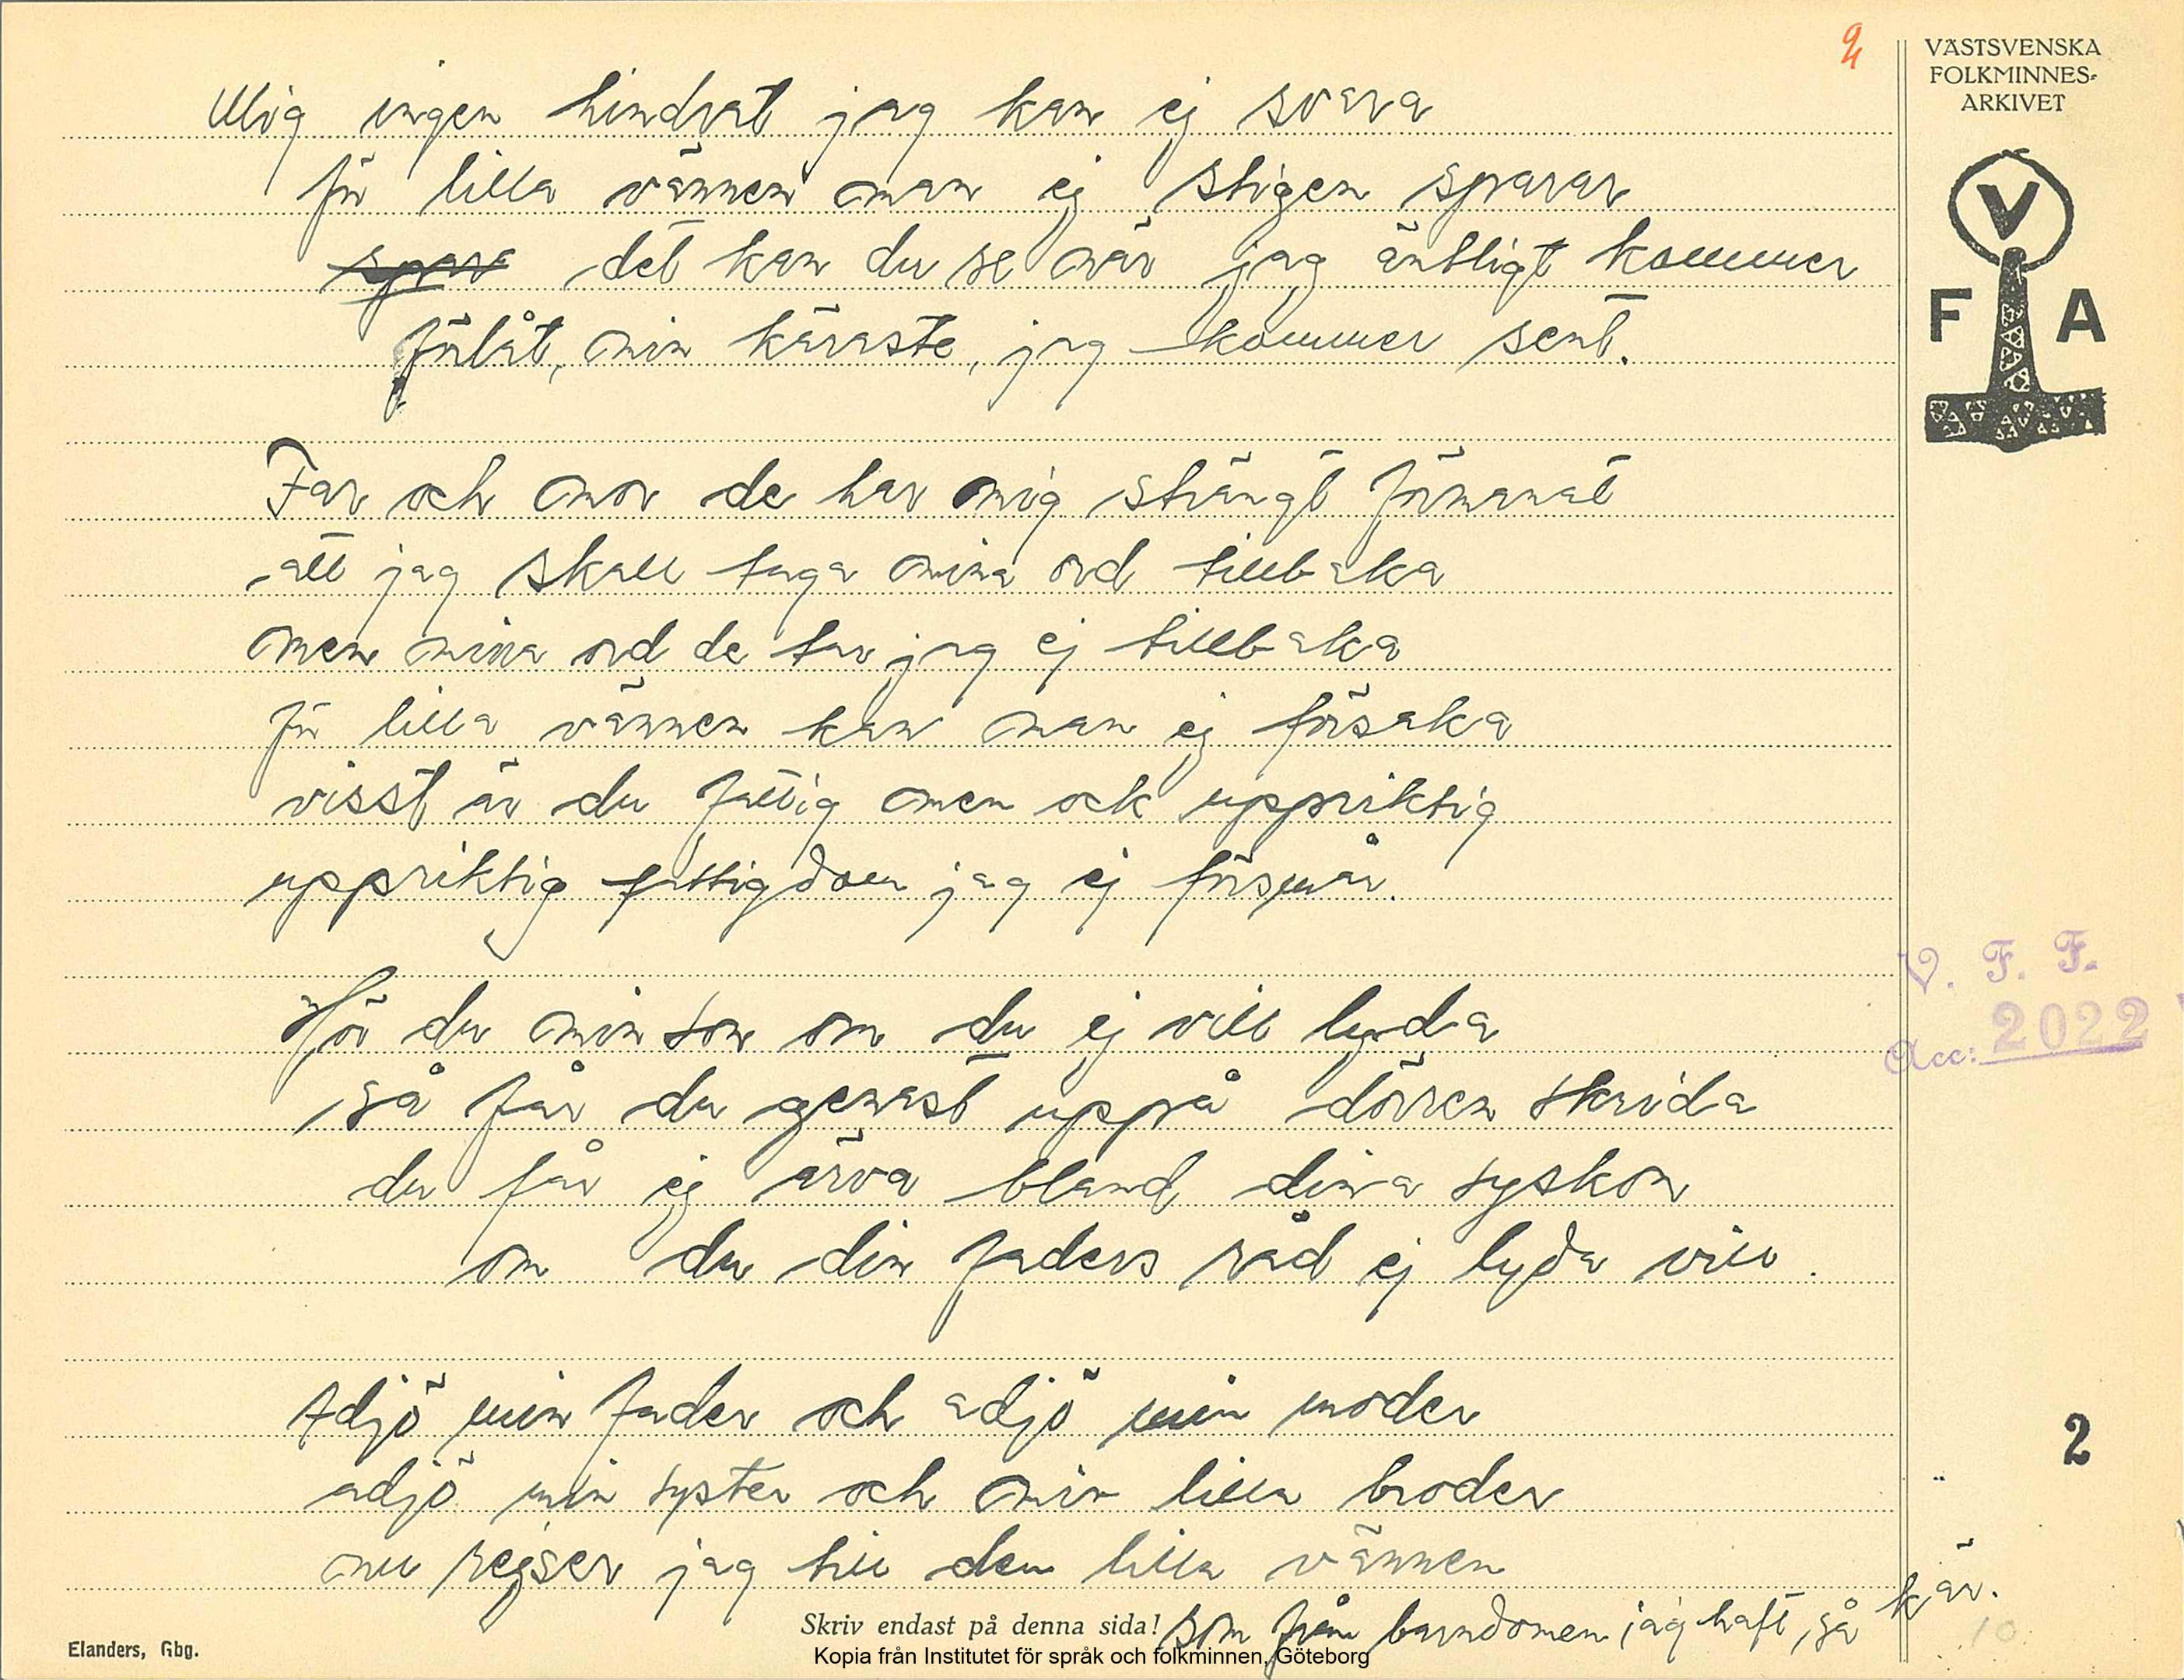 9
VÄSTSVENSKA
FOLKMINNES-
ARKIVET
V
F A
Mig ingen hindrat jag kan ej svara
för lilla vännen man ej stigen sparar
spara det kan du se när jag äntligt kommer
förlåt, min käraste, jag kommer sent.
Far och mor de har mig strängt förmanat
att jag skall taga mina ord tillbaka
men mina ord de tar jag ej tillbaka
för lilla vännen kan man ej försaka
visst är du fattig men ock uppriktig
uppriktig fattigdom jag ej försmår.
Hör du min son om du ej vill lyda
så får du genast uppå dörren skrida
du får ej ärva bland dina syskon
om du din faders råd ej lyda vill.
V. F. F.
Acc: 2022
Adjö min fader och adjö min moder
adjö min syster och min lilla broder
nu rejser jag till den lilla vännen
som från barndomen jag haft, så kär.
2
10
Skriv endast på denna sida!
Elanders, Gbg.
Kopia från Institutet för språk och folkminnen, Göteborg